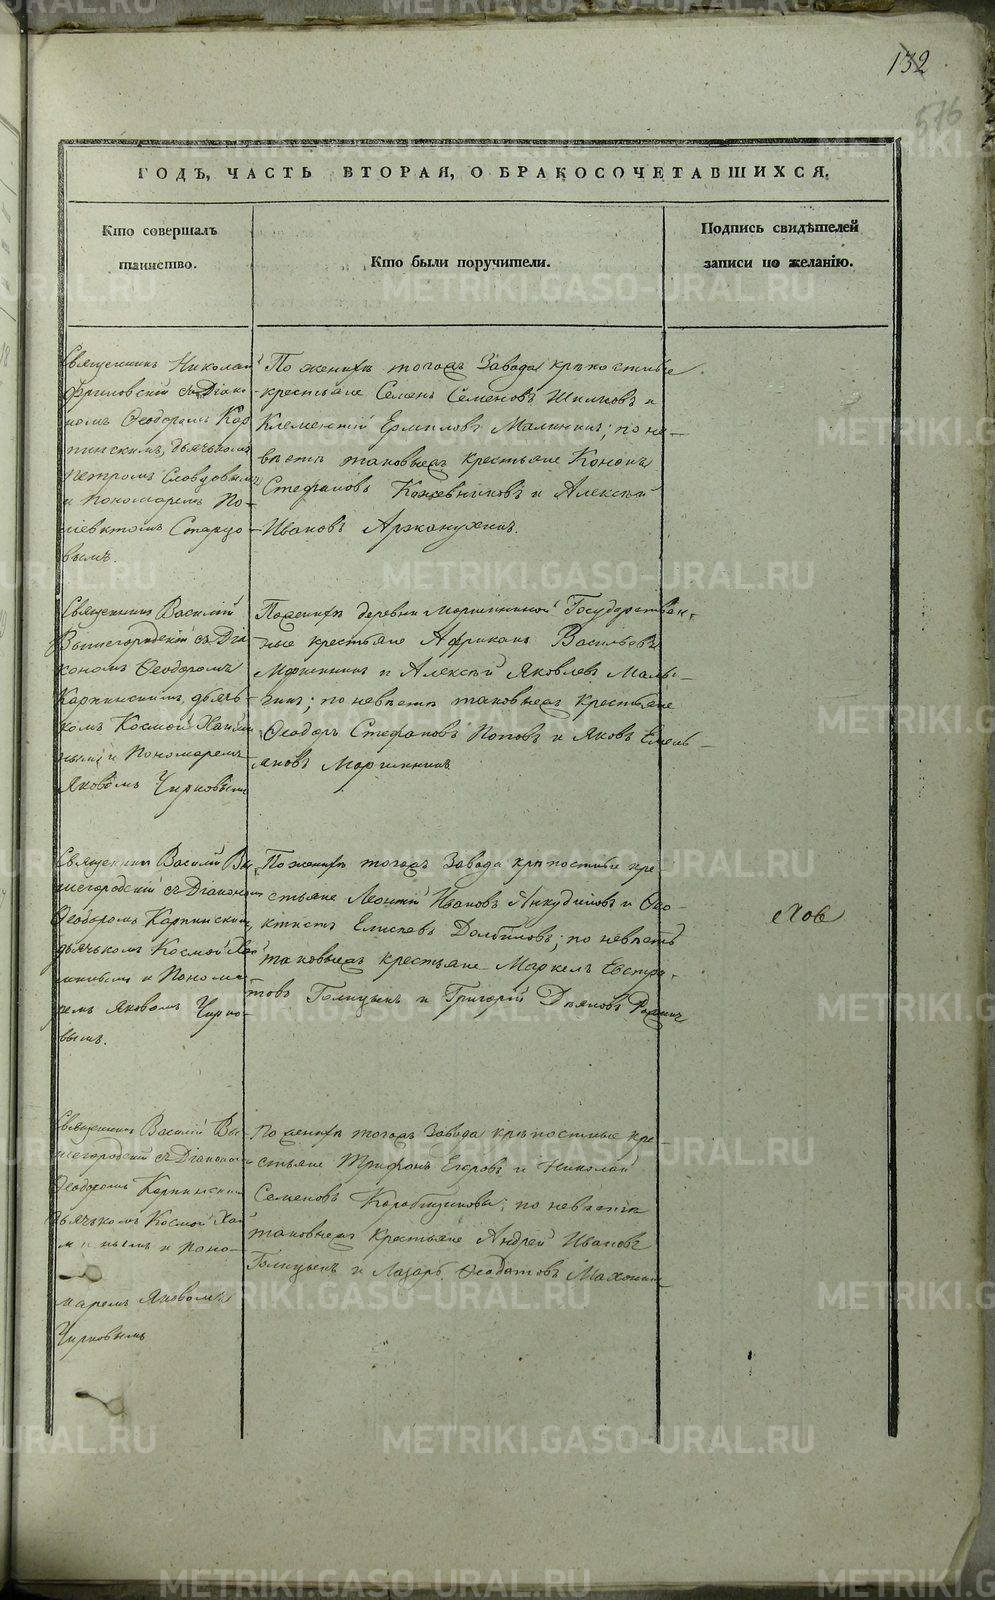 132
576
ГОДЪ, ЧАСТЬ ВТОРАЯ, О БРАКОСОЧЕТАВШИХСЯ.
Кто совершалъ
таинство.
Кто были поручители.
Подпись свидѣтелей
записи по желанію.
Священникъ Николай
съ Діако-
номъ Ѳеодоромъ Кар
пинскимъ, дьячкомъ
Петромъ Словцовымъ
и Пономаремъ По
лiевктомъ Старцо
вымъ.
По женихѣ тогожъ Завода крѣпостные
крестьяне Семенъ Семеновъ и
Климентій Ермиловъ Малинкинъ; по не-
вѣстѣ таковыежъ крестьяне Кононъ
Стефановъ Кожевниковъ и Алексѣй
Ивановъ Аржанухинъ.
Священникъ Василій
Вышегородскій съ Діа
кономъ Ѳеодоромъ
Карпинскимъ, дьяч-
комъ Космой
и Пономаремъ
Яковомъ Чирковымъ
По женихѣ деревни Государствен-
ные крестьяне Африканъ Васильевъ
и Алексѣй Яковлевъ
по невѣстѣ таковыежъ крестьяне
Ѳеодоръ Стефановъ Поповъ и Яковъ Емель-
яновъ
Священникъ Василій Вы
шегородскій съ Діакономъ
Ѳеодоромъ Карпинскимъ,
дьячкомъ Космой
и Понома-
ремъ Яковомъ Чирко-
вымъ.
По женихѣ тогожъ Завода крѣпостные кре-
стьяне Леонтій Ивановъ Анкудиновъ и Ѳео-
ктистъ Елисѣевъ Долбиловъ; по невѣстѣ
таковыежъ крестьяне Маркелъ Евстра-
товъ Голицынъ и Григорій
Священникъ Василій Вы
шегородскій съ Діакономъ
Ѳеодоромъ Карпинскимъ
дьячкомъ Космой
и поно-
маремъ Яковомъ
Чирковымъ
По женихѣ тогожъ Завода крѣпостные кре-
стьяне Трифонъ Егоровъ и Николай
Семеновъ по невѣстѣ
таковыежъ крестьяне Андрей Ивановъ
Голицынъ и Лазарь Ѳеодотовъ Махонинъ
METRIKI.GASO-URAL.RU